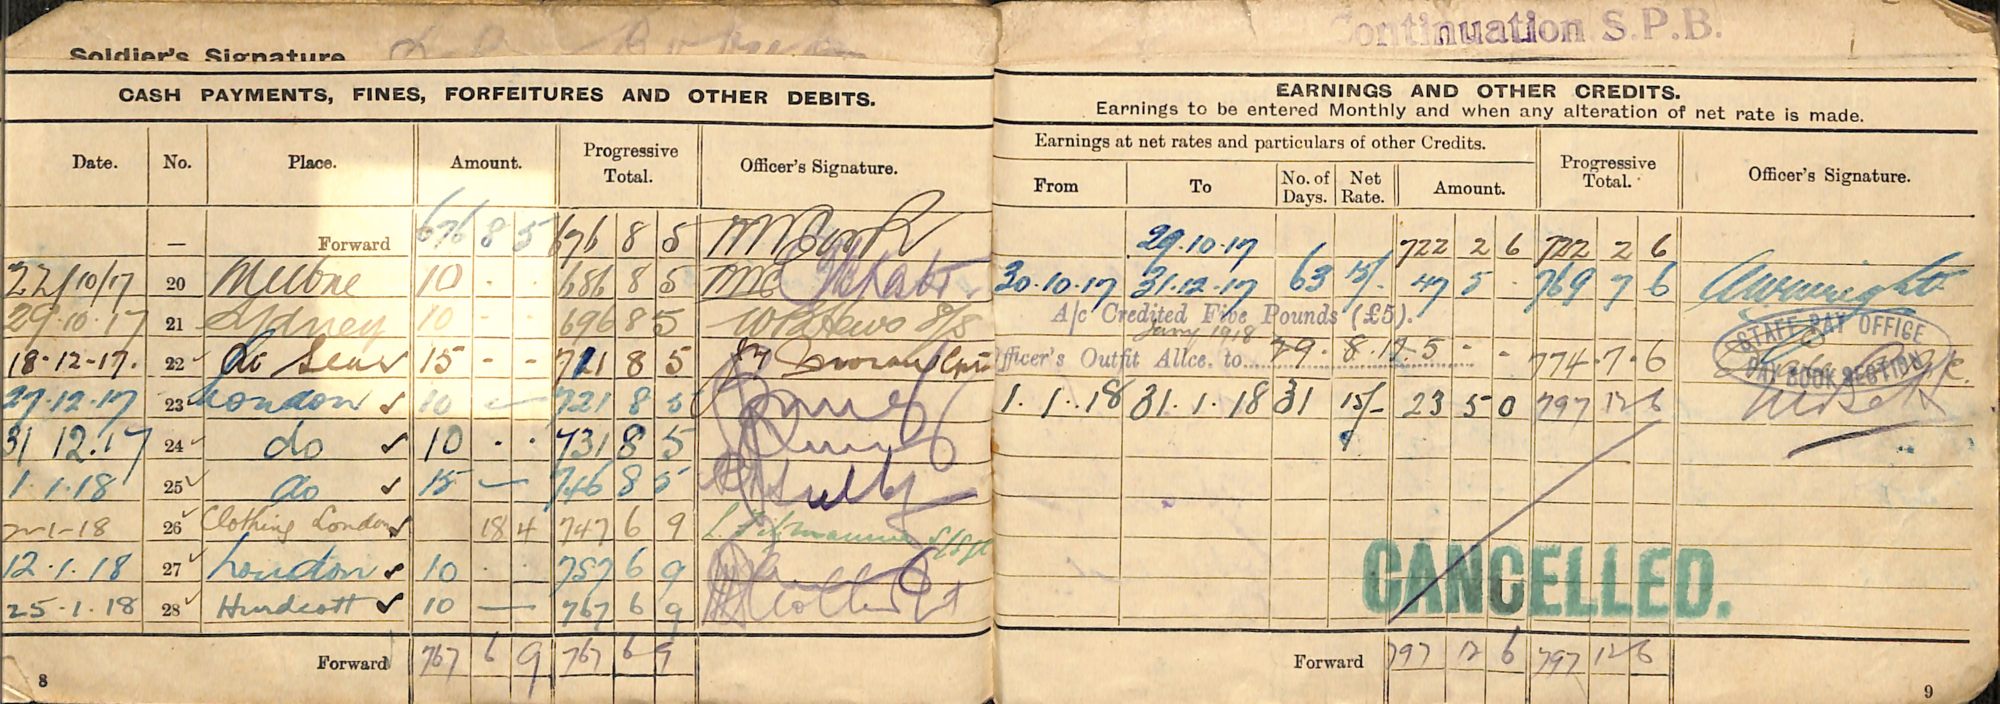 Soldier's Signature
CASH PAYMENTS, FINES, FORFEITURES AND OTHER DEBITS.
Date. No. Place. Amount. Progressive Total. Officer's Signature.
— Forward 676 8 5 676 8 5
22/10/17 20 Melbne 10 - - 686 8 5
29.10.17 21 Sydney 10 - - 696 8 5
18-12-17. 22 At Sea 15 - - 711 8 5
27.12.17 23 London 10 — 721 8 5
31 12.17 24 do 10 . . 731 8 5
1.1.18 25 do 15 — 746 8 5
1-18 26 Clothing London 18 4 747 6 9
12.1.18 27 London 10 . . 757 6 9
25.1.18 28 Hurdcott 10 — 767 6 9
Forward 767 6 9 767 6 9
8
Continuation S.P.B.
EARNINGS AND OTHER CREDITS.
Earnings to be entered Monthly and when any alteration of net rate is made.
Earnings at net rates and particulars of other Credits. Progressive Total. Officer's Signature.
From To No. of Days. Net Rate. Amount.
29.10.17 722 2 6 722 2 6
30.10.17 31.12.17 63 15/- 47 5 - 769 7 6
A/c Credited Five Pounds (£5).
Jany 1918
Officer's Outfit Allce. to 29. 8. 17. 5 - - 774.7.6
STAFF PAY OFFICE
PAY BOOK SECTION
1.1.18 31.1.18 31 15/- 23 5 0 797 12 6
CANCELLED.
Forward 797 12 6 797 12 6
9